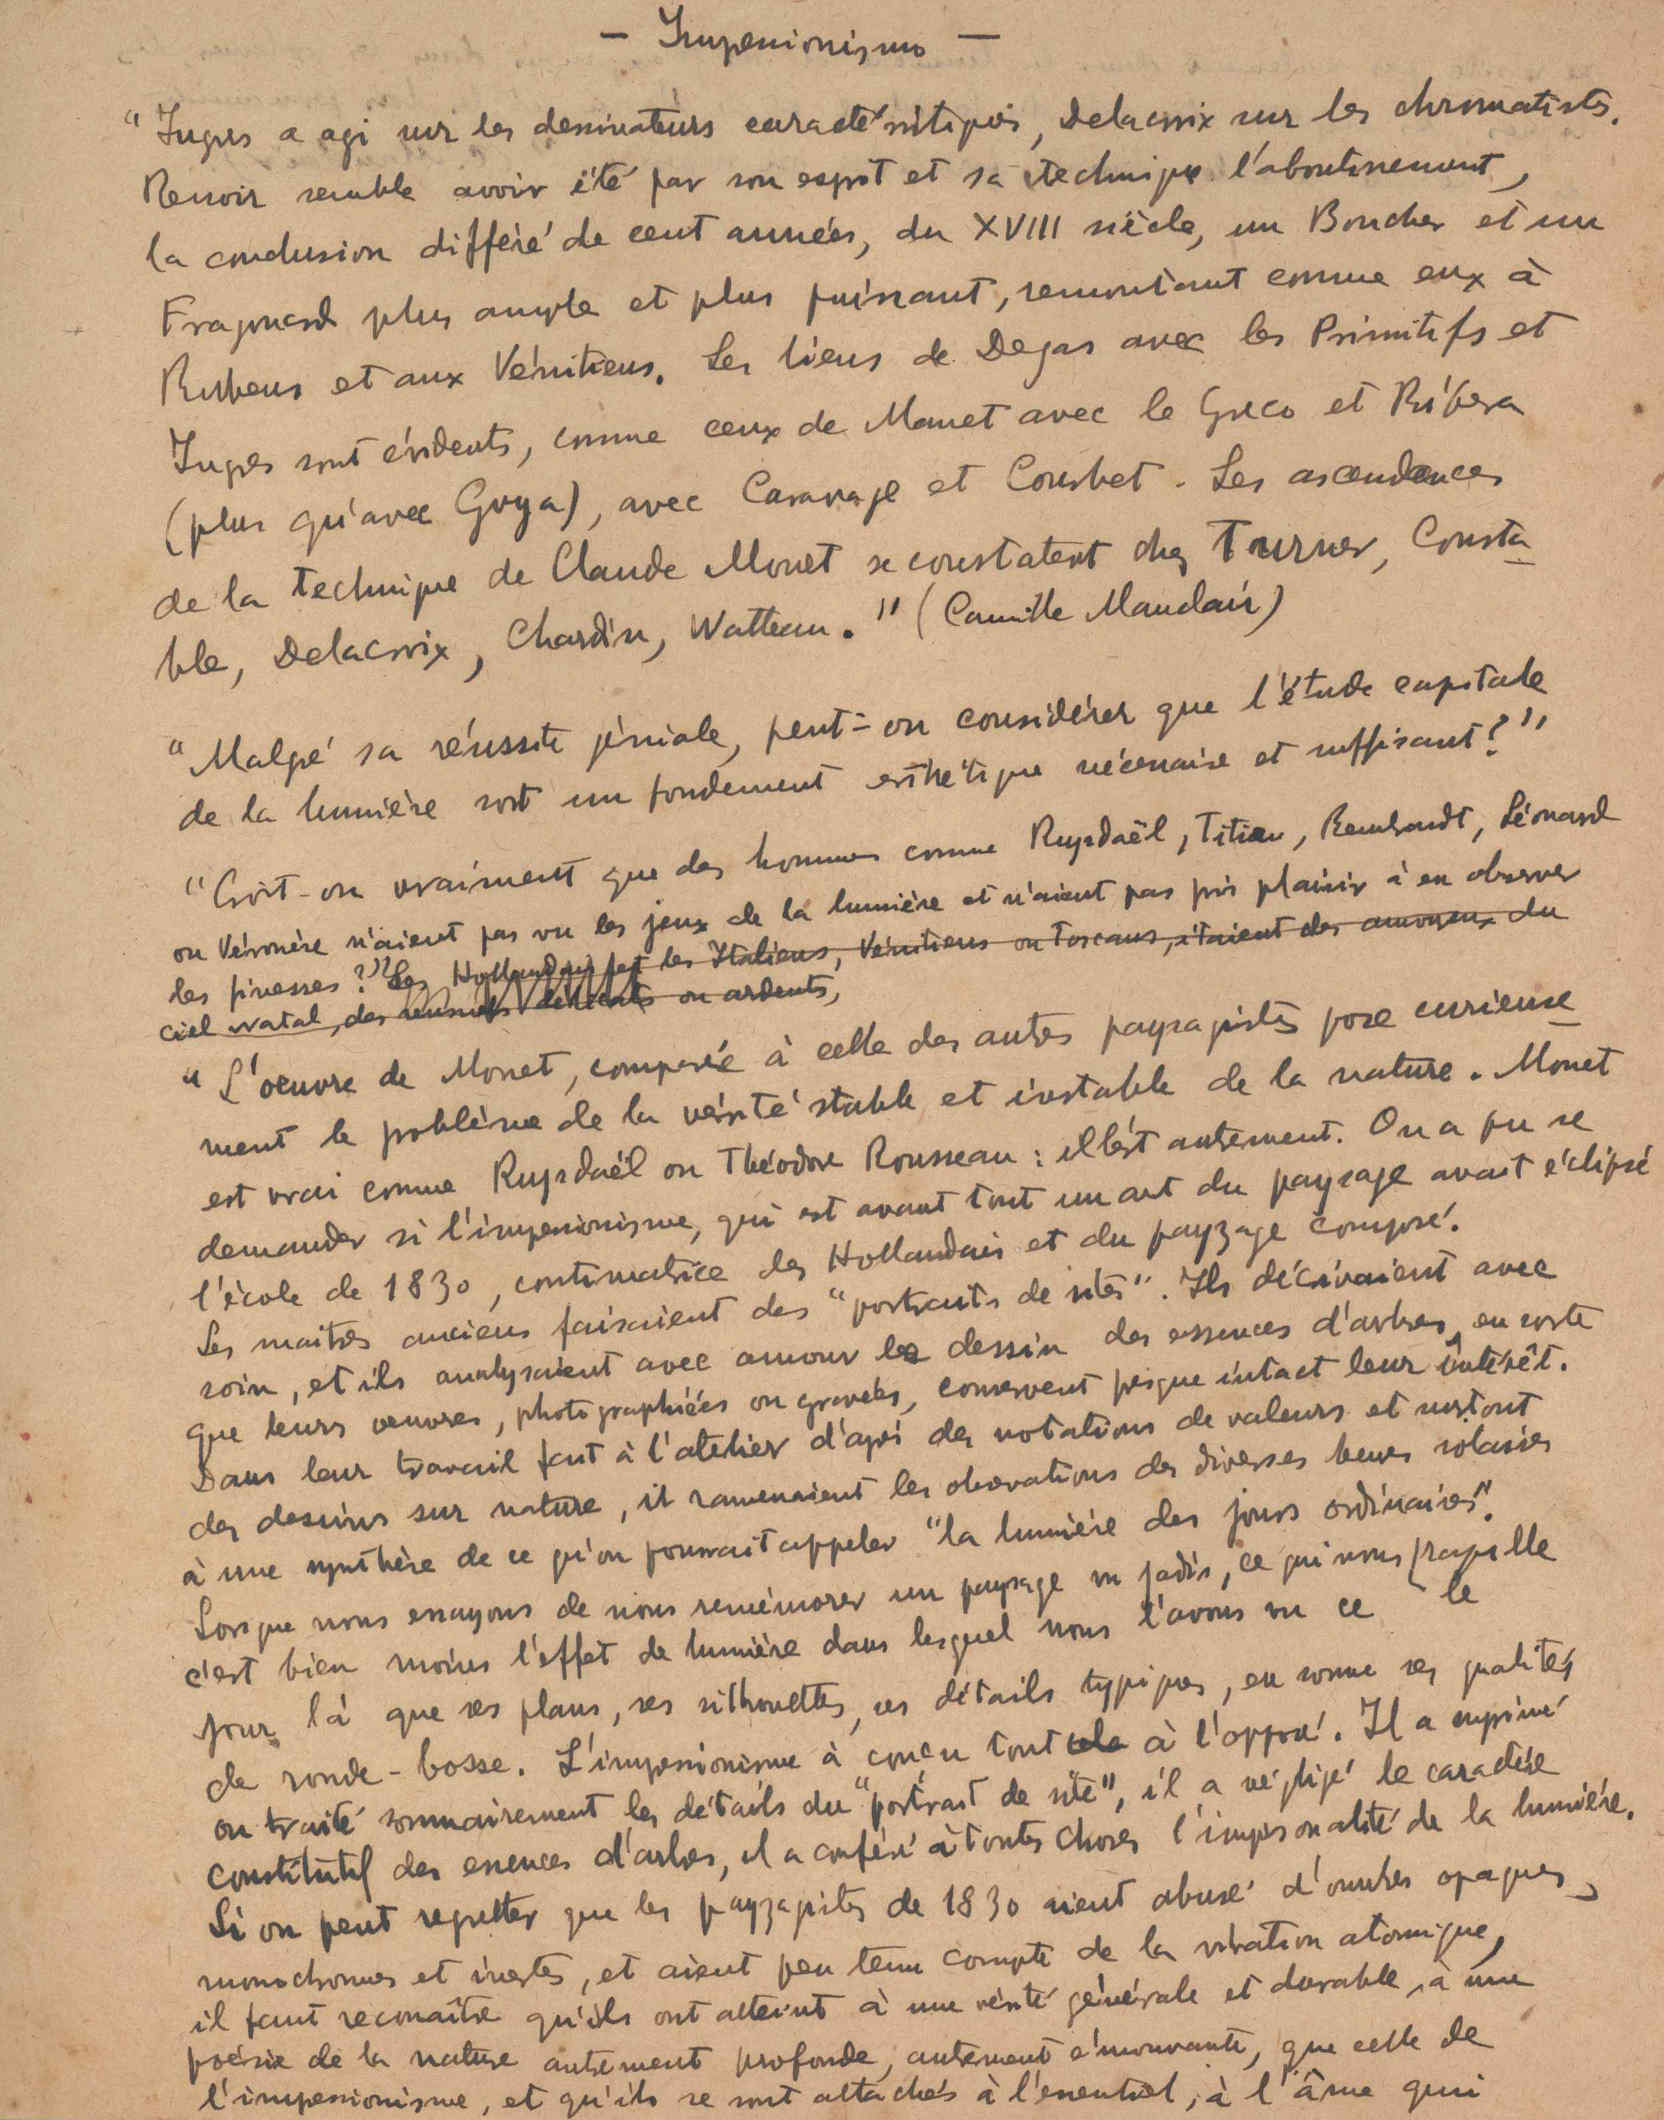 — Impresionismo —
“Ingres a agi sur les dessinateurs caractéristiques, Delacroix sur les chromatistes.
Renoir semble avoir été par son esprit et sa technique l'aboutissement,
la conclusion différé de cent années, du XVIII siècle, un Boucher et un
Fragonard plus ample et plus puissant, remontant comme eux à
Rubens et aux Vénitiens. Les liens de Degas avec les Primitifs et
Ingres sont évidents, comme ceux de Manet avec le Greco et Ribera
(plus qu'avec Goya), avec Caravage et Courbet. Les ascendances
de la technique de Claude Monet se constatent chez Turner, Consta-
ble, Delacroix, Chardin, Watteau.” (Camille Mauclair)
“Malgré sa réussite géniale, peut-on considérer que l'étude capitale
de la lumière soit un fondement esthétique nécessaire et suffisant?”
“Croit-on vraiment que des hommes comme Ruysdaël, Titien, Rembrandt, Léonard
ou Véronèse n'aient pas vu les jeux de la lumière et n'aient pas pris plaisir à en observer
les finesses?” Les Hollandais les Italiens, Vénitiens ou Toscans, étaient des amoureux du
ciel natal, des ou ardents,
“L'oeuvre de Monet, comparée à celle des autres paysagistes pose curieuse-
ment le problème de la vérité stable et instable de la nature. Monet
est vrai comme Ruysdaël ou Théodore Rousseau: il l'est autrement. On a pu se
demander si l'impresionisme, qui est avant tout un art du paysage avait éclipsé
l'école de 1830, continuatrice des Hollandais et du payzage composé.
Les maitres anciens faisaient des “portraits de sites”. Ils décrivaient avec
soin, et ils analysaient avec amour le dessin des essences d'arbres, en sorte
que leurs oeuvres, photographiées ou gravées, conservent presque intact leur intérêt.
Dans leur travail fait à l'atelier d'après des notations de valeurs et surtout
des dessins sur nature, il ramenaient les observations des diverses heures solaires
à une synthèse de ce qu'on pourrait appeler “la lumière des jours ordinaires”.
Lorsque nous essayons de nous remémorer un paysage vu jadis, ce qui nous frappe le
c'est bien moins l'effet de lumière dans lesquel nous l'avons vu ce le
jour là que ses plans, ses silhouettes, ses détails typiques, en somme ses qualités
de ronde-bosse. L'impresionisme à conçu tout à l'opposé. Il a suprimé
ou traité sommairement les détails du “portrait de site”, il a négligé le caractère
constitutif des essences d'arbres, il a conféré à toutes choses l'impersonalité de la lumière.
Si on peut regretter que les payzagistes de 1830 aient abusé d'ombres opaques,
monochromes et inertes, et aient peu tenu compte de la vibration atomique,
il faut reconaître qu'ils ont atteint à une vérité générale et durable, à une
poésie de la nature autrement profonde, autrement émouvante, que celle de
l'impresionisme, et qu'ils se sont attachés à l'essentiel, à l'âme qui